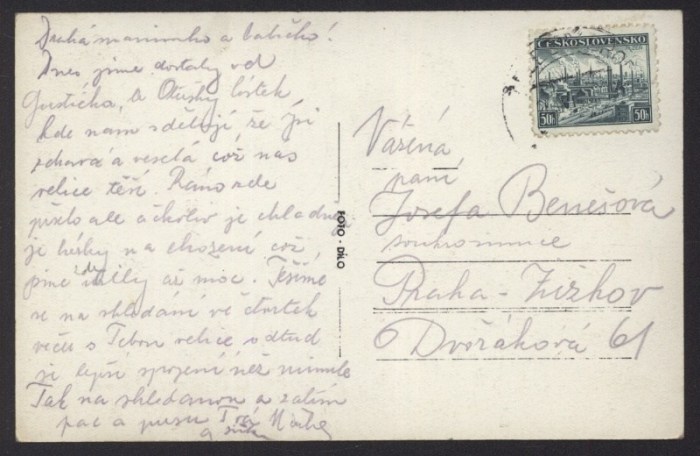 Drahá maminko a babičko!
Dnes jsme dostaly od
Gustíčka, a Otušky lístek
kde nam sdělují že jsi
zdravá a veselá což nas
velice těší. Ráno zde
pršelo ale ačkoliv je chladno
je hezky na chození což
jsme zde měly až moc. Těšíme
se na shledání ve čtvrtek
večer s Tebou velice odtud
je lepší spojení než minule
Tak na shledanou a zatím
pac a pusu Tvá
a
ČESKOSLOVENSKO
50h 50h
FOTO - DÍLO
Vážená
paní
Josefa Benešová
soukromnice
Praha - Žižkov
Dvořákova 61